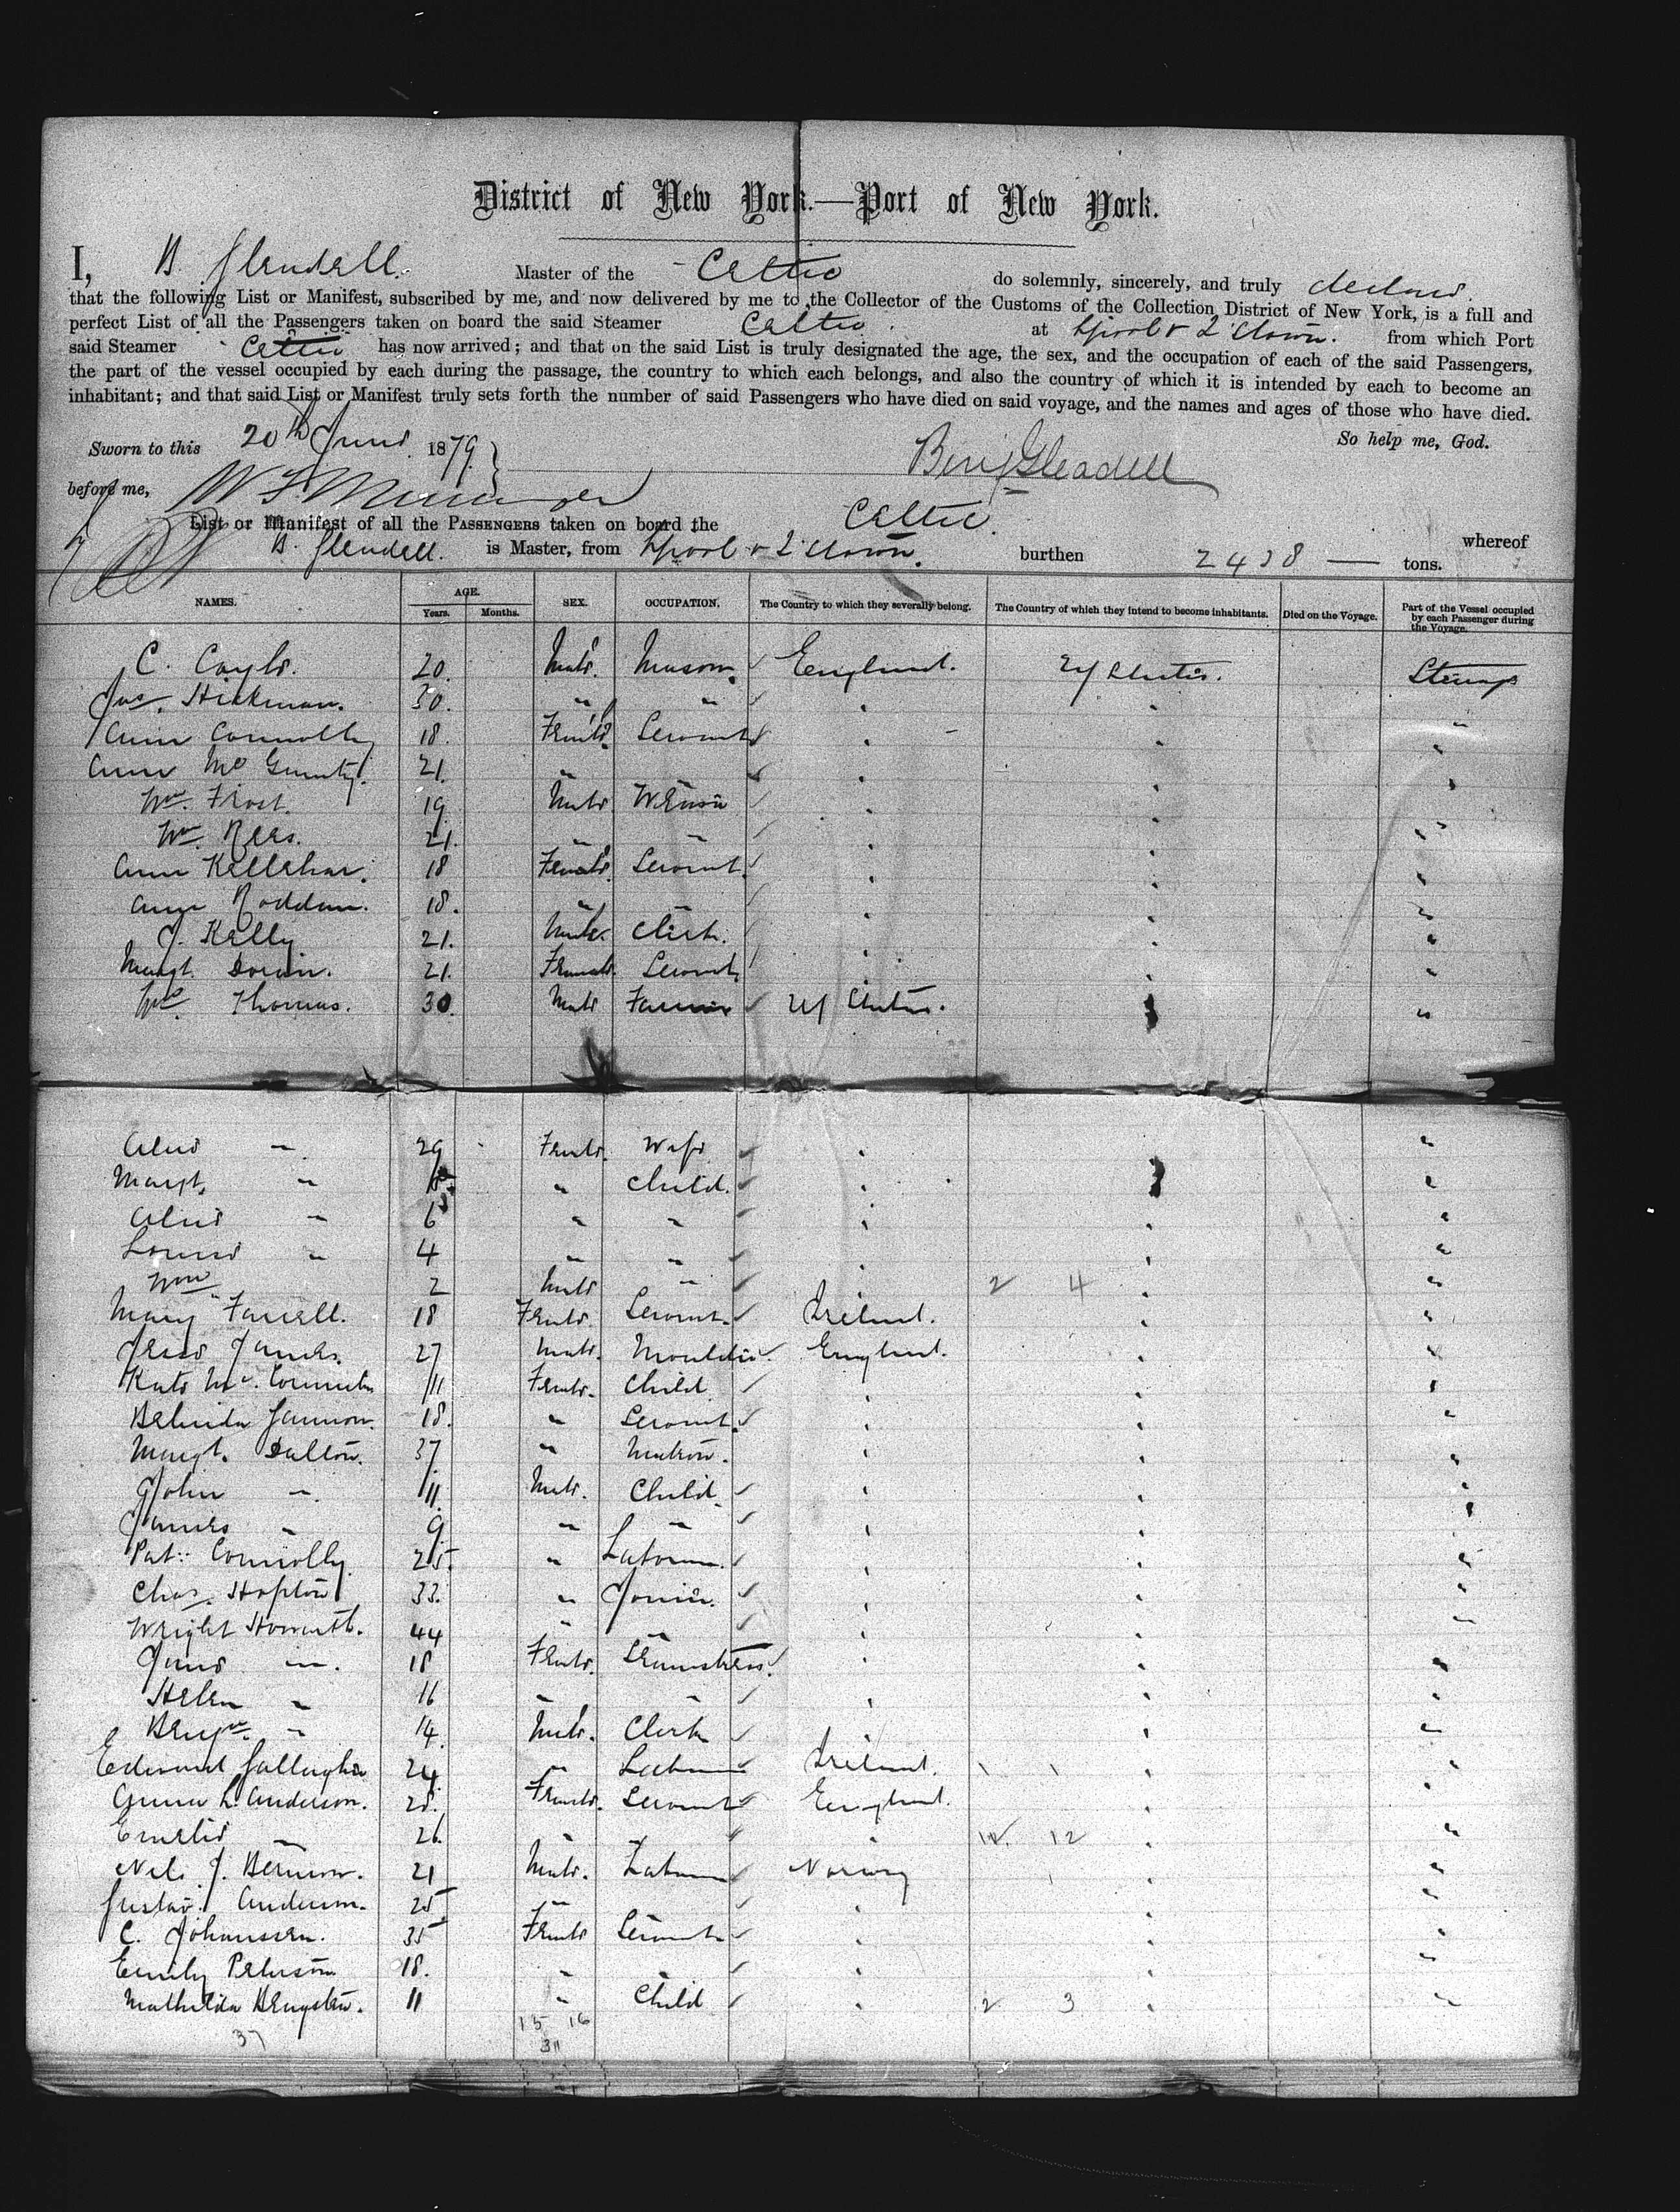 District of New York.—Port of New York.
I, B. Gleadell Master of the Celtic do solemnly, sincerely, and truly declare
that the following List or Manifest, subscribed by me, and now delivered by me to the Collector of the Customs of the Collection District of New York, is a full and
perfect List of all the Passengers taken on board the said Steamer Celtic at L'pool & Q'town. from which Port
said Steamer Celtic has now arrived; and that on the said List is truly designated the age, the sex, and the occupation of each of the said Passengers,
the part of the vessel occupied by each during the passage, the country to which each belongs, and also the country of which it is intended by each to become an
inhabitant; and that said List or Manifest truly sets forth the number of said Passengers who have died on said voyage, and the names and ages of those who have died.
So help me, God.
Sworn to this 20th June 1879.
Benj Gleadell
before me,
List or Manifest of all the PASSENGERS taken on board the Celtic. whereof
B. Gleadell. is Master, from L'pool & Q'town. burthen 2438 — tons.
NAMES. AGE. Years. Months. SEX. OCCUPATION. The Country to which they severally belong. The Country of which they intend to become inhabitants. Died on the Voyage. Part of the Vessel occupied by each Passenger during the Voyage.
C. 20. Male. Mason. England. U States. Steerage
Jas. Hickman. 30. " " " " "
Ann Connolly 18. Female Servant " " "
Ann 21. " " " "
Wm. Frost. 19. Male " " "
Wm. Rees. 21. " " " " "
Ann Kellehar. 18 Female. Servant. " " "
Ann Roddan. 18. " " " " "
J. Kelly 21. Male. Clerk. " " "
Margt. 21. Female. Servant " " "
Thomas. 30. Male Farmer U States. " "
Alice " 29 Female. Wife " " "
Margt. " " Child. " " "
Alice " 6 " " " " "
Louisa " 4 " " " " "
Wm " 2 Male " " 2 4 " "
Mary Farrell. 18 Female. Servant. Ireland. " "
Jesse James. 27 Male. Moulder. England. " "
Kate 11 Female. Child " " "
Belinda 18. " Servant. " " "
Margt. Dalton. 37. " Matron. " " "
John " 11. Male. Child " " "
James " 9 " " " " "
Pat: Connolly 25. " Labourer. " " "
Chas. Hopton 33. " Joiner. " " "
Wright Howarth. 44 " " " " "
Jane " 18 Female. Seamstress. " " "
Helen " 16 " " " " "
Benjn. " 14. Male. Clerk " " "
Edward Gallagher 24. " Labourer Ireland. " "
L. Anderson. 28. Female. Servant England. " "
" 26. " " 12 " "
Nels J. 21 Male. Labourer Norway " "
Gustav. Anderson. 25. " " " "
C. Johanssen. 35 Female Servant " " "
Emily Peterson 18. " " " " "
Mathilda Bengsten. 11 " Child " 2 3 " "
37 15 16
31